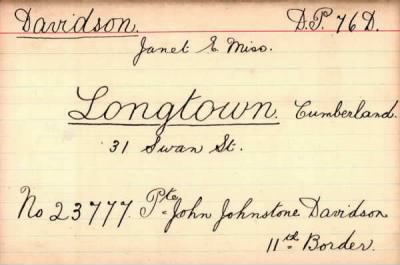 Davidson. D.P. 76 D.
Janet E. Miss.
Longtown. Cumberland.
31 Swan St.
No 23777. Pte John Johnstone Davidson
11th Border.